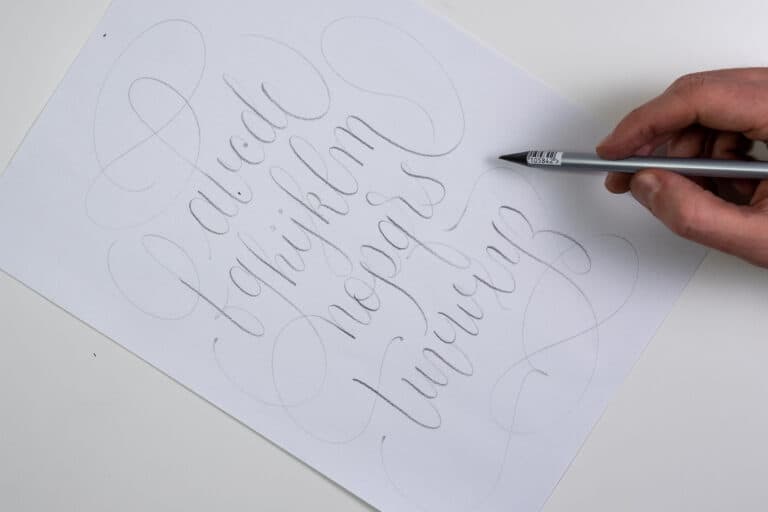 abcde
fghijklm
nopqrs
tuvwxyz